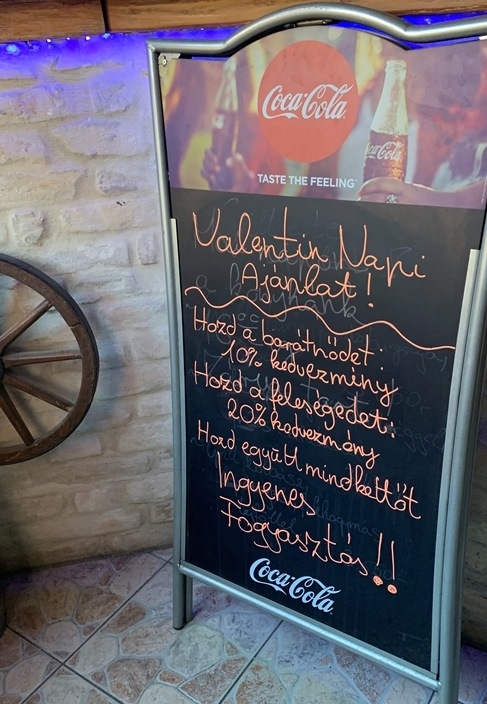 Coca-Cola
Coca-Cola
TASTE THE FEELING
Valentin Napi
Ajánlat!
Hozd a barátnődet:
10% kedvezmény
Hozd a feleségedet:
20% kedvezmény
Hozd együtt mindkettőt
Ingyenes
Fogyasztás!!
Coca-Cola